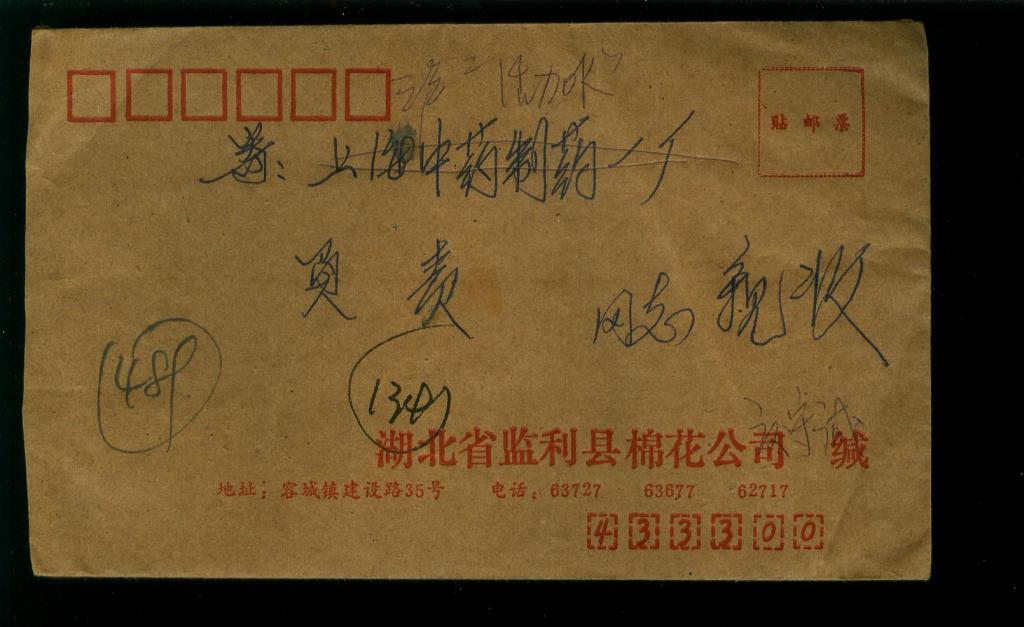 活力水
贴邮票
寄：上海中药制药一厂
负责 同志 亲收
1489
1341
湖北省监利县棉花公司 缄
地址：容城镇建设路35号 电话：63727 63677 62717
433300